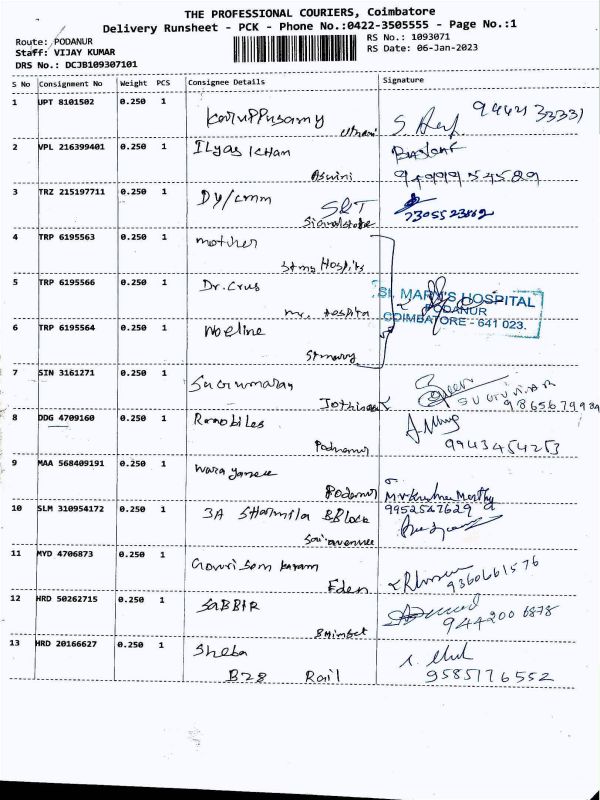 THE PROFESSIONAL COURIERS, Coimbatore
Delivery Runsheet - PCK - Phone No.:0422-3505555 - Page No.:1
Route: PODANUR
Staff: VIJAY KUMAR
DRS No.: DCJB109307101
RS No.: 1093071
RS Date: 06-Jan-2023
S No Consignment No Weight PCS Consignee Details Signature
1 UPT 8101502 0.250 1 Karuppusamy
2 VPL 216399401 0.250 1 Ilyas Khan
Aswini
3 TRZ 215197711 0.250 1 Dy/cmm S&T
4 TRP 6195563 0.250 1 mother
5 TRP 6195566 0.250 1 Dr. Crus
6 TRP 6195564 0.250 1 Noeline
St mary
ST. MARY'S HOSPITAL
PODANUR
COIMBATORE - 641 023.
7 SIN 3161271 0.250 1 Sugumaran
8 DDG 4709160 0.250 1
Podnanur 9943454253
9 MAA 568409191 0.250 1
Podanur
10 SLM 310954172 0.250 1 3A Sharmila B Block 9952547629
11 MYD 4706873 0.250 1
Eden 9360661576
12 HRD 50262715 0.250 1 SABBIR
9442006878
13 HRD 20166627 0.250 1 Sheba
B28 Rail 9585176552